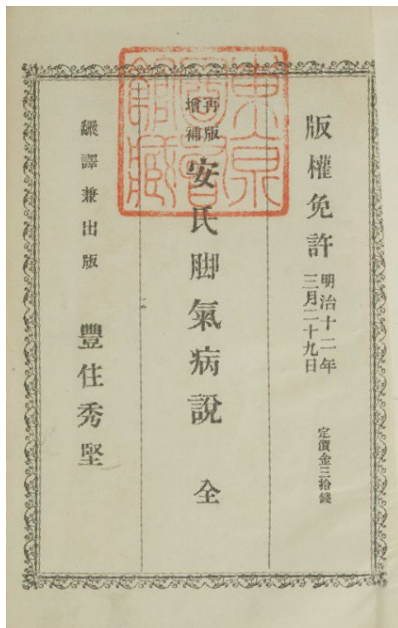 版權免許
明治十二年
三月二十九日
定價金三拾錢
再版
增補
安氏脚氣病說 全
飜譯兼出版 豐住秀堅
東京
圖書
館藏